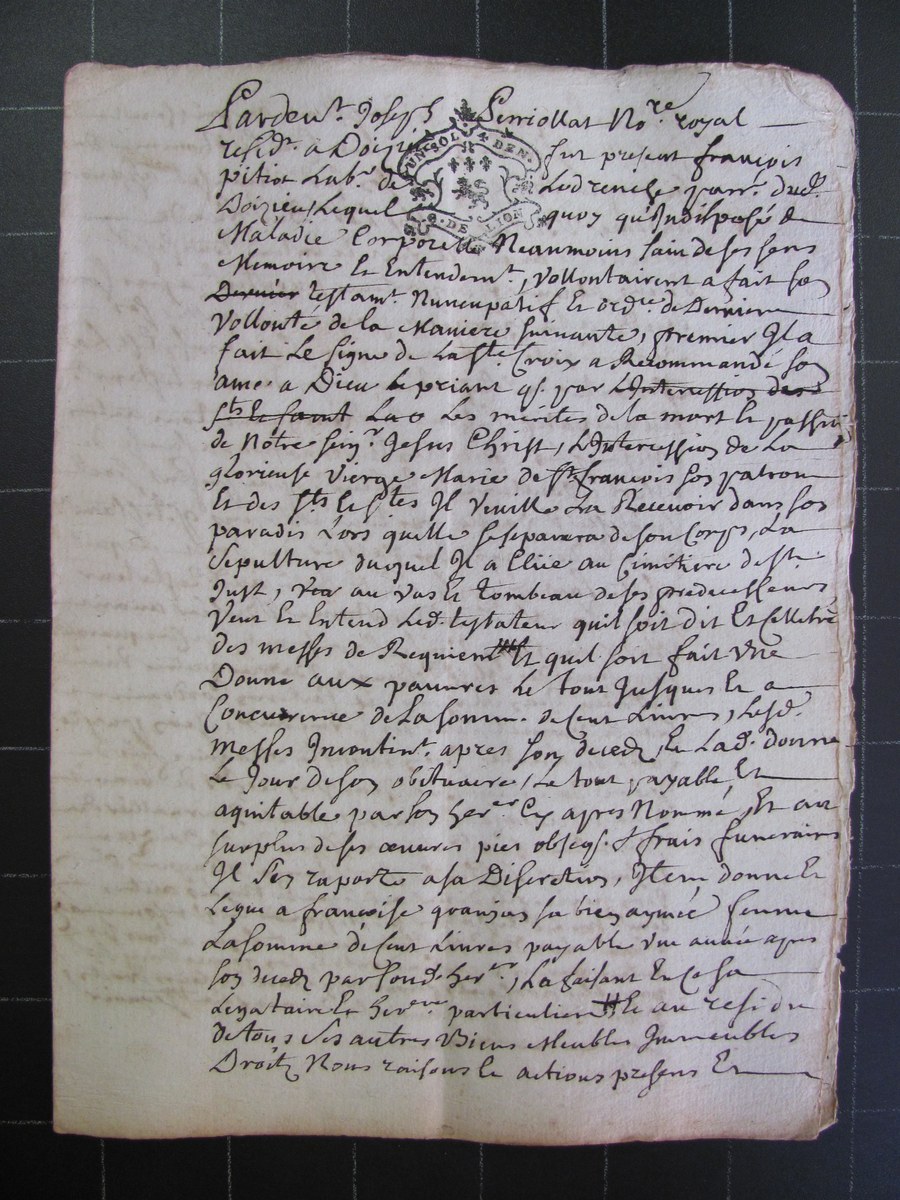 Pardevt. Joseph Perriollat Nore. royal
residt. a Doizieu fut present françois
pitiot Labr. de Ledrenche parr. dud.
Doizieu, Lequel quoy qu'Indisposé de
UN SOL 4 DEN.
G. DE LION
Maladie Corporelle Neaumoins sain de ses sens
Memoire Et Entendemt., vollontairent a fait son
Dernier testamt. Nuncupatif Et ordre. de Derniere
vollonté de la Maniere suivante, premier Il a
fait Le signe de La Ste. Croix a Recommandé son
ame a Dieu Le priant q. par L'Intercession des
sts Le sont Les mérites de la mort Et passion
de Notre seigr. Jesus Christ, L'Intercession de La
glorieuse vierge Marie de st. françois son patron
Et des sts Et stes Il veuille La Recevoir dans son
paradis Lors quelle se separera de son Corps, La
sepulture duquel Il a Eliie au Cimitiere de st.
Just, au vas Et tombeau de ses predecesseurs,
Veut Et Entend Led. testateur quil soit dit Et Cellebré
des messes de Requiem Et quel soit fait Une
Donne aux pauvres Le tout Jusques Et a
Concurrence de La somme de Cent Livres, Lesd.
messes Incontint. apres son deced, Et Lad. donne
Le Jour de son obituaire, Le tout payable Et
aquitable par son herer. Cy apres Nommé, Et au
surplus de ses œuvres pies obseqs. & frais funeraires
Il s'en raporte a sa Discretion, Item donne Et
Legue a françoise sa bien aymée femme
La somme de Cent Livres payable une année apres
son deced par sond. herer., La faisant En Ce sa
Legataire Et herere particuliere Et au residu
De tous ses autres Biens Meubles Immeubles
Droits Noms raisons Et actions presens Et